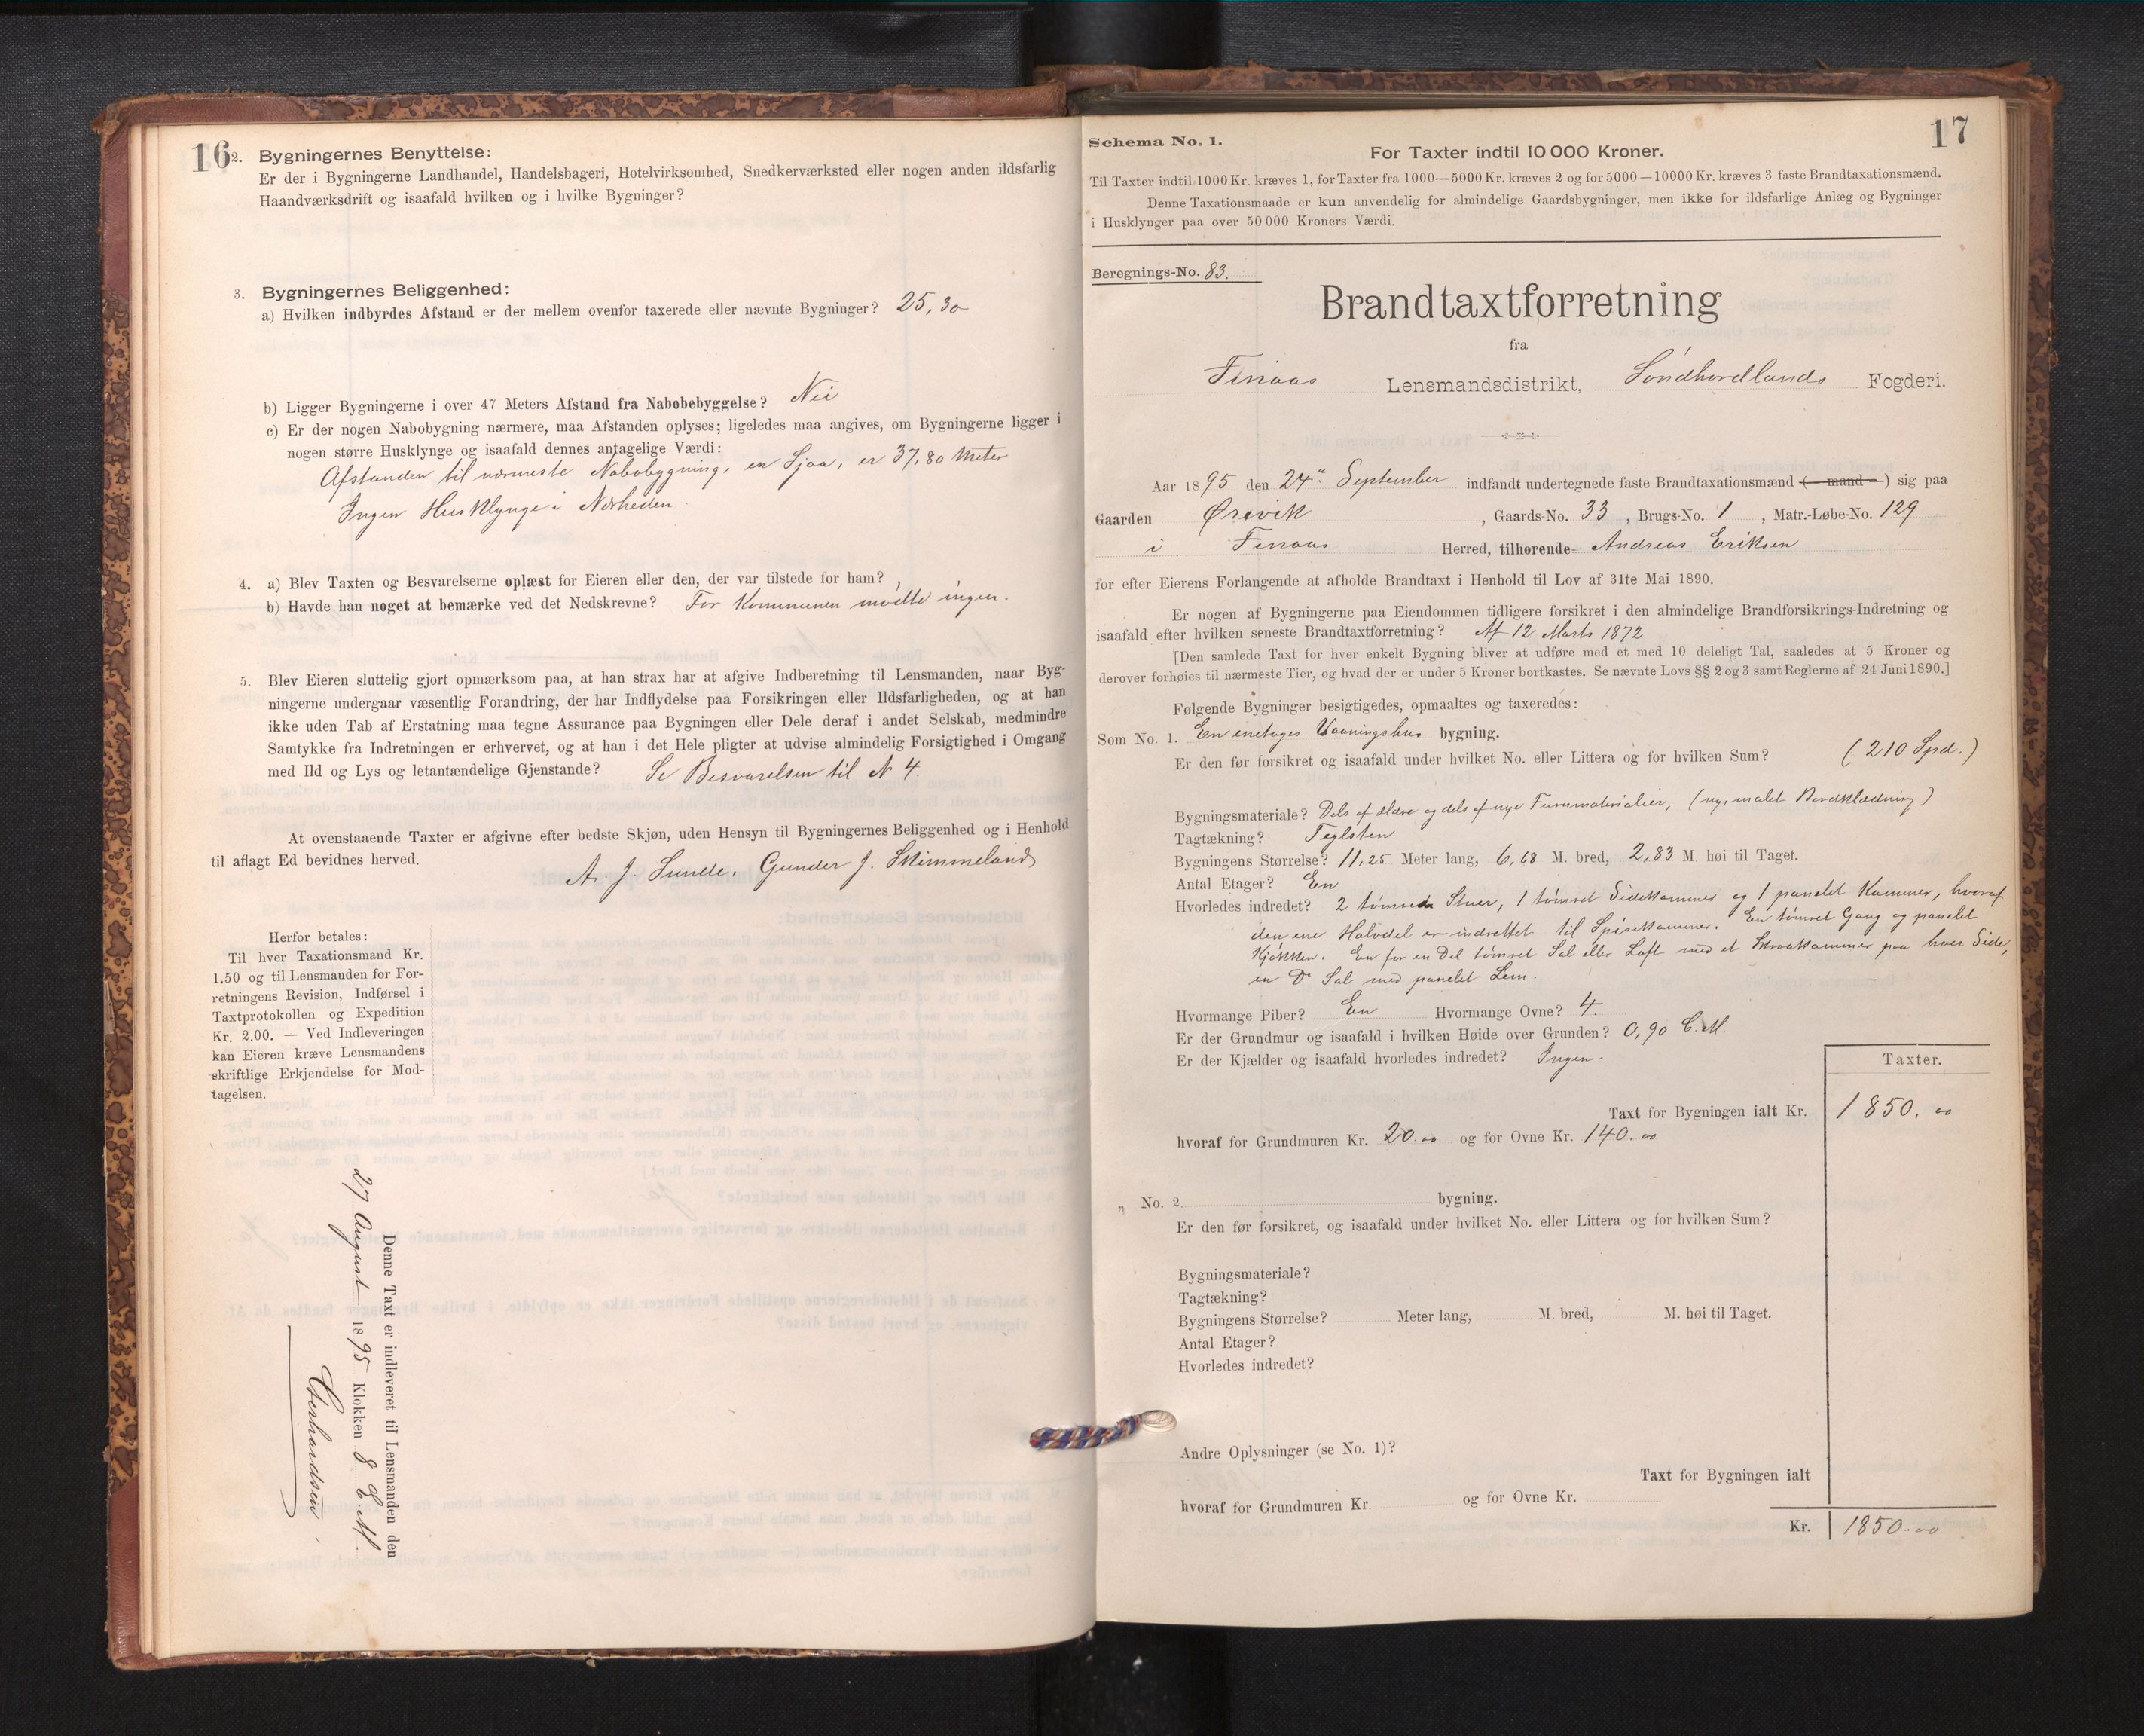 16
2. Bygningernes Benyttelse:
Er der i Bygningerne Landhandel, Handelsbageri, Hotelvirksomhed, Snedkerværksted eller nogen anden ildsfarlig
Haandværksdrift og isaafald hvilken og i hvilke Bygninger?
3. Bygningernes Beliggenhed:
a) Hvilken indbyrdes Afstand er der mellem ovenfor taxerede eller nævnte Bygninger? 25,30
b) Ligger Bygningerne i over 47 Meters Afstand fra Nabobebyggelse? Nei
c) Er der nogen Nabobygning nærmere, maa Afstanden oplyses; ligeledes maa angives, om Bygningerne ligger i
nogen større Husklynge og isaafald dennes antagelige Værdi:
Afstanden til nærmeste Nabobygning, en Sjaa, er 37,80 Meter
Ingen Husklynge i Nærheden.
4. a) Blev Taxten og Besvarelserne oplæst for Eieren eller den, der var tilstede for ham?
b) Havde han noget at bemærke ved det Nedskrevne? For Kommunen mödte ingen.
5. Blev Eieren sluttelig gjort opmærksom paa, at han strax har at afgive Indberetning til Lensmanden, naar Byg-
ningerne undergaar væsentlig Forandring, der har Indflydelse paa Forsikringen eller Ildsfarligheden, og at han
ikke uden Tab af Erstatning maa tegne Assurance paa Bygningen eller Dele deraf i andet Selskab, medmindre
Samtykke fra Indretningen er erhvervet, og at han i det Hele pligter at udvise almindelig Forsigtighed i Omgang
med Ild og Lys og letantændelige Gjenstande? Se Besvarelsen til N 4.
At ovenstaaende Taxter er afgivne efter bedste Skjøn, uden Hensyn til Bygningernes Beliggenhed og i Henhold
til aflagt Ed bevidnes herved.
A. J. Sunde. Gunder J. Skimmeland
Herfor betales:
Til hver Taxationsmand Kr.
1.50 og til Lensmanden for For-
retningens Revision, Indførsel i
Taxtprotokollen og Expedition
Kr. 2.00. — Ved Indleveringen
kan Eieren kræve Lensmandens
skriftlige Erkjendelse for Mod-
tagelsen.
Denne Taxt er indleveret til Lensmanden den
27 August 1895 Klokken 8 E. M.
Gerhardsen
17
Schema No. 1.
For Taxter indtil 10 000 Kroner.
Til Taxter indtil 1000 Kr. kræves 1, for Taxter fra 1000—5000 Kr. kræves 2 og for 5000—10000 Kr. kræves 3 faste Brandtaxationsmænd.
Denne Taxationsmaade er kun anvendelig for almindelige Gaardsbygninger, men ikke for ildsfarlige Anlæg og Bygninger
i Husklynger paa over 50 000 Kroners Værdi.
Beregnings-No. 83.
Brandtaxtforretning
fra
Finaas Lensmandsdistrikt, Søndhordlands Fogderi.
Aar 1895 den 24. September indfandt undertegnede faste Brandtaxationsmænd (—mand—) sig paa
Gaarden Ørevik, Gaards-No. 33, Brugs-No. 1, Matr.-Løbe-No. 129
i Finaas Herred, tilhørende Andreas Eriksen
for efter Eierens Forlangende at afholde Brandtaxt i Henhold til Lov af 31te Mai 1890.
Er nogen af Bygningerne paa Eiendommen tidligere forsikret i den almindelige Brandforsikrings-Indretning og
isaafald efter hvilken seneste Brandtaxtforretning? Af 12 Marts 1872
[Den samlede Taxt for hver enkelt Bygning bliver at udføre med et med 10 deleligt Tal, saaledes at 5 Kroner og
derover forhøies til nærmeste Tier, og hvad der er under 5 Kroner bortkastes. Se nævnte Lovs §§ 2 og 3 samt Reglerne af 24 Juni 1890.]
Følgende Bygninger besigtigedes, opmaaltes og taxeredes:
Som No. 1. En enetages Vaaningshus bygning.
Er den før forsikret og isaafald under hvilket No. eller Littera og for hvilken Sum? (210 Spd.)
Bygningsmateriale? Dels af ældre og dels af nye Furumaterialier, (ny, malet Bordklædning)
Tagtækning? Teglsten
Bygningens Størrelse? 11,25 Meter lang, 6,68 M. bred, 2,83 M. høi til Taget.
Antal Etager? En
Hvorledes indredet? 2 tömrede Stuer, 1 tömret Sidekammer og 1 panelet Kammer, hvoraf
den ene Halvdel er indrettet til Spisekammer. En tömret Gang og panelet
Kjökken. En for en Del tömret Sal eller Loft med et Skraakammer paa hver Side,
en Do Sal med panelet Lem.
Hvormange Piber? En Hvormange Ovne? 4.
Er der Grundmur og isaafald i hvilken Høide over Grunden? 0,90 C.M.
Er der Kjælder og isaafald hvorledes indredet? Ingen.
Taxter.
Taxt for Bygningen ialt Kr. 1850. 00
hvoraf for Grundmuren Kr. 20.00 og for Ovne Kr. 140.00
„ No. 2 bygning.
Er den før forsikret, og isaafald under hvilket No. eller Littera og for hvilken Sum?
Bygningsmateriale?
Tagtækning?
Bygningens Størrelse? Meter lang, M. bred, M. høi til Taget.
Antal Etager?
Hvorledes indredet?
Andre Oplysninger (se No. 1)?
Taxt for Bygningen ialt
hvoraf for Grundmuren Kr. og for Ovne Kr.
Kr. 1850.00